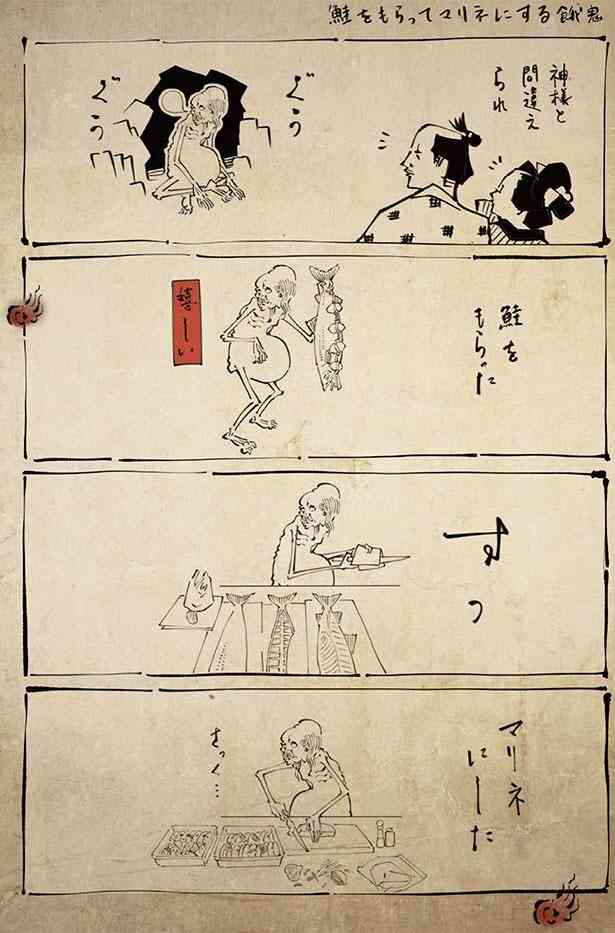 鮭をもらってマリネにする餓鬼
神様と
間違え
られ
ぐぅ
ぐぅ
鮭を
もらった
嬉しい
すっ
マリネ
にした
さっく…